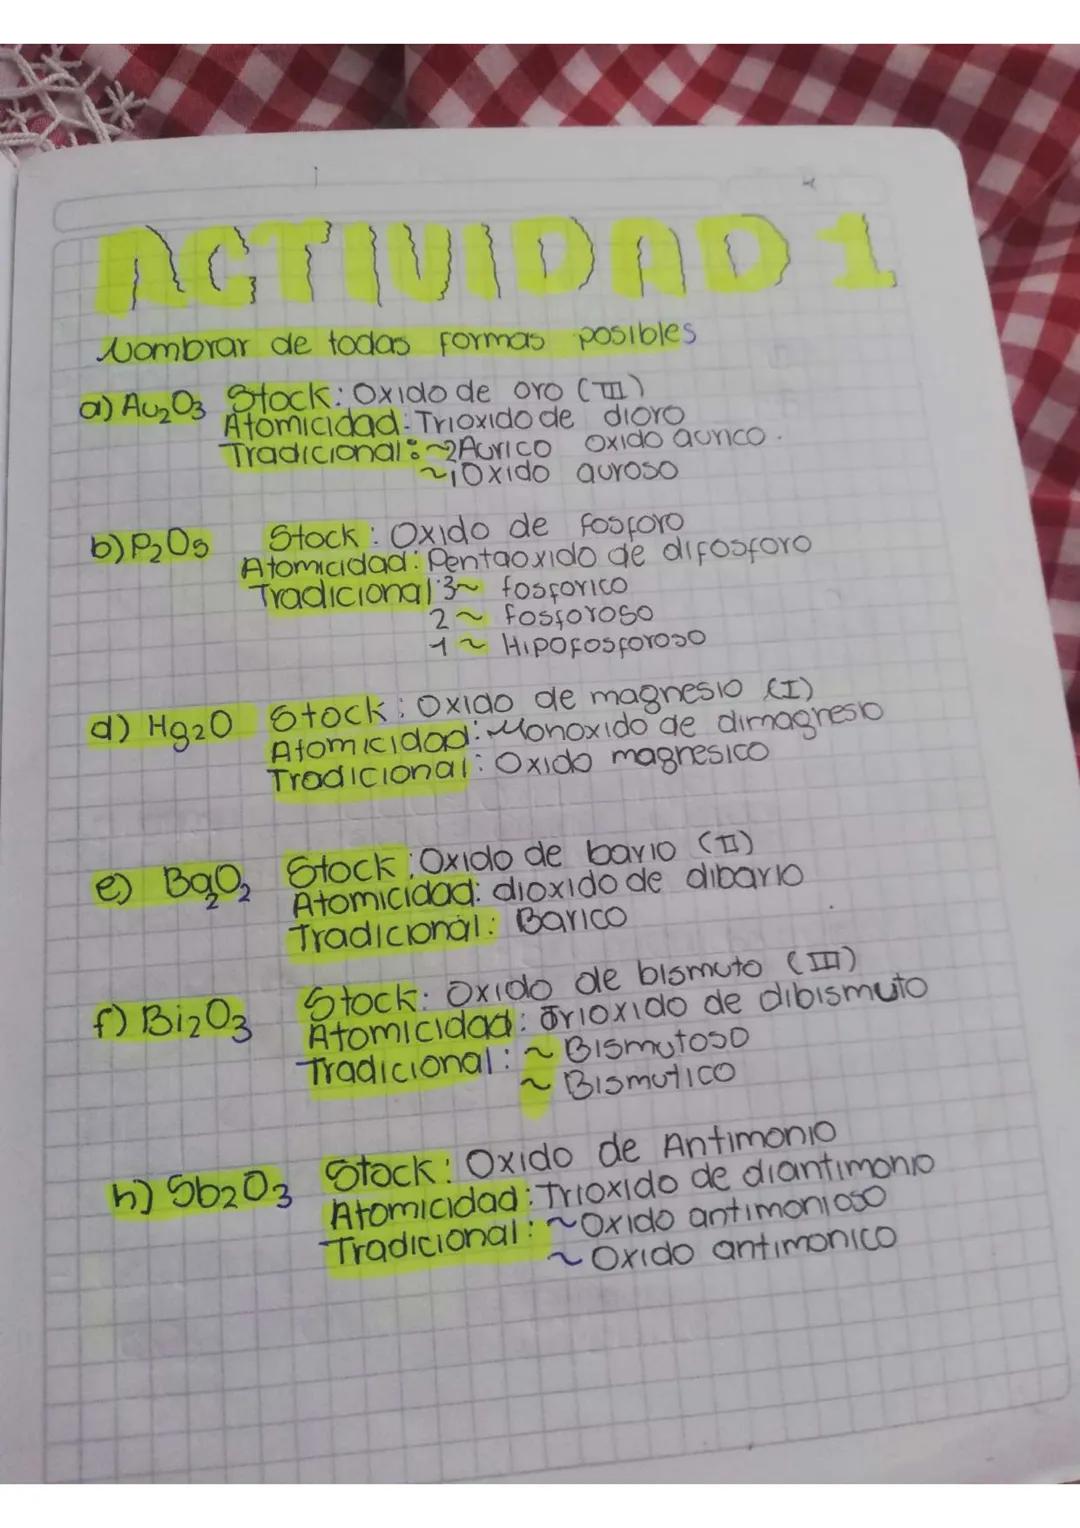 ACTIVIDAD 1
Nombrar de todas formas posibles
a) Au2O3 Stock: Oxido de oro (III)
Atomicidad: Trioxido de dioro
Tradicional: ~2 Aurico oxido aurico.
~1 Oxido auroso
b) P2O5 Stock: Oxido de fosforo
Atomicidad: Pentaoxido de difosforo
Tradicional: 3~ fosforico
2~ fosforoso
1~ Hipofosforoso
d) Hg2O Stock: Oxido de magnesio (I)
Atomicidad: Monoxido de dimagnesio
Tradicional: Oxido magnesico
e) Ba2O2 Stock: Oxido de bario (II)
Atomicidad: dioxido de dibario
Tradicional: Barico
f) Bi2O3 Stock: Oxido de bismuto (III)
Atomicidad: Trioxido de dibismuto
Tradicional: ~ Bismutoso
~ Bismutico
h) Sb2O3 Stock: Oxido de Antimonio
Atomicidad: Trioxido de diantimonio
Tradicional: ~ Oxido antimonioso
~ Oxido antimonico